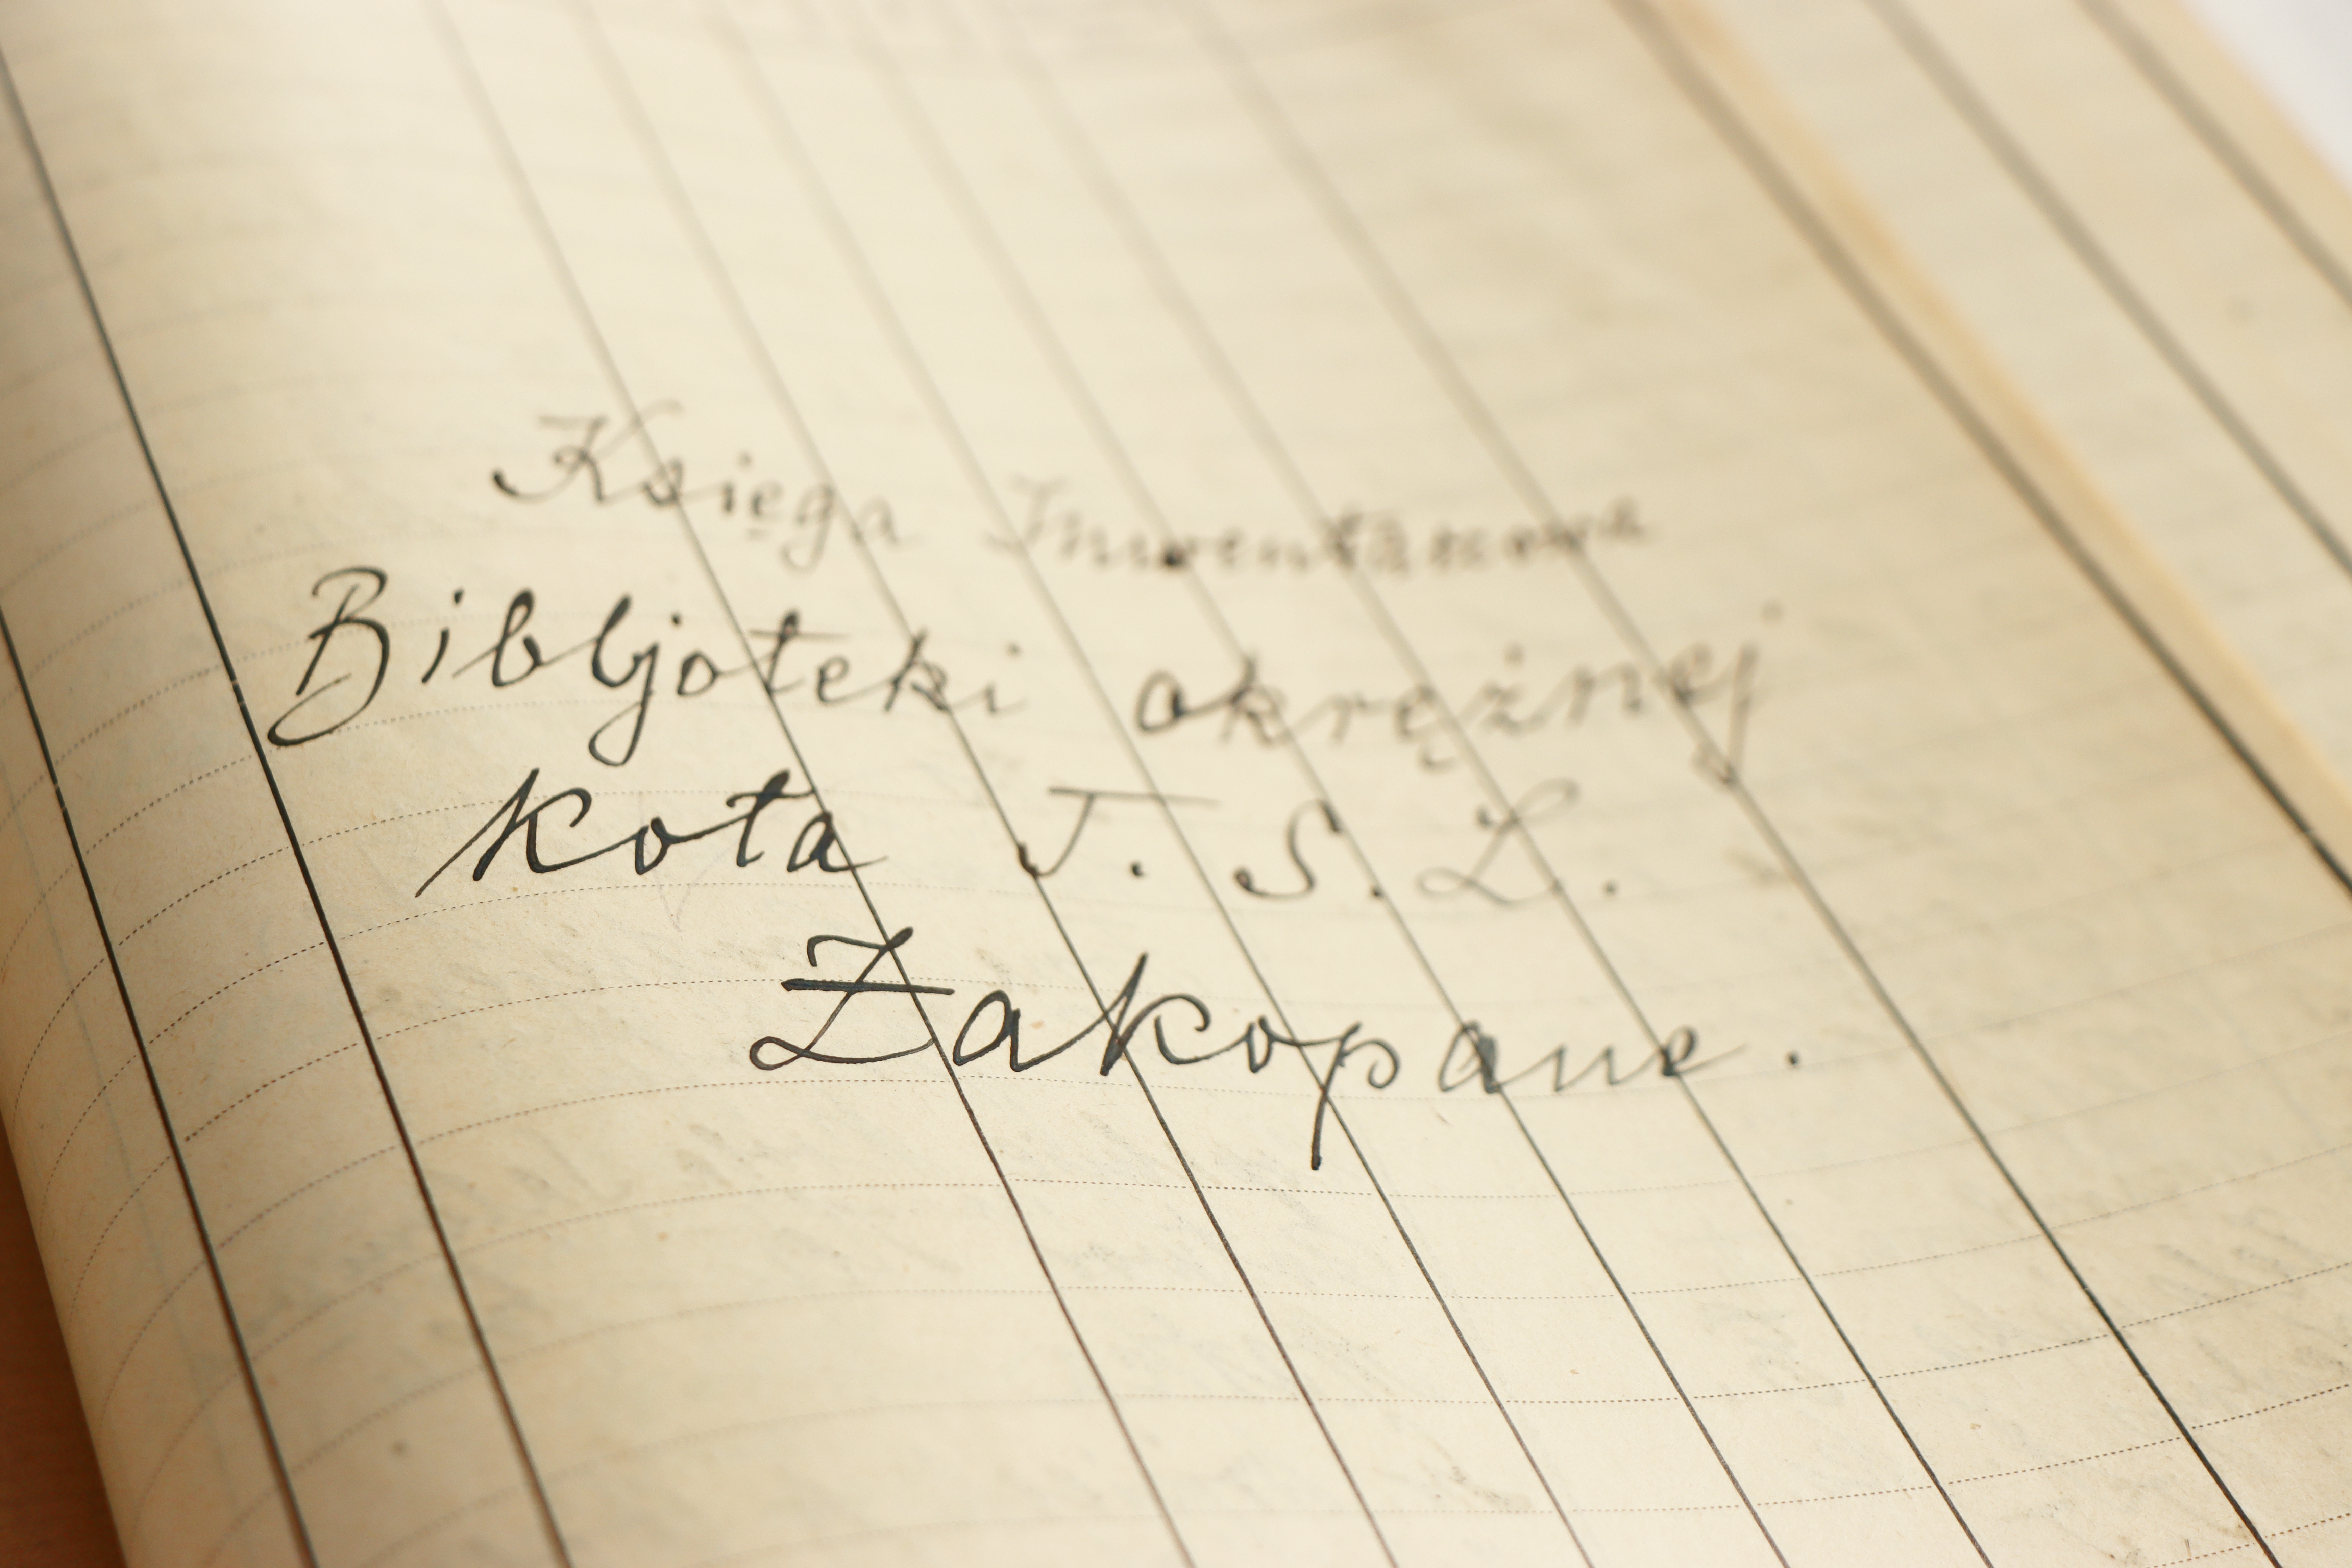 Księga Inwentarzowa
Bibljoteki okrężnej
Koła T. S. L.
Zakopane.